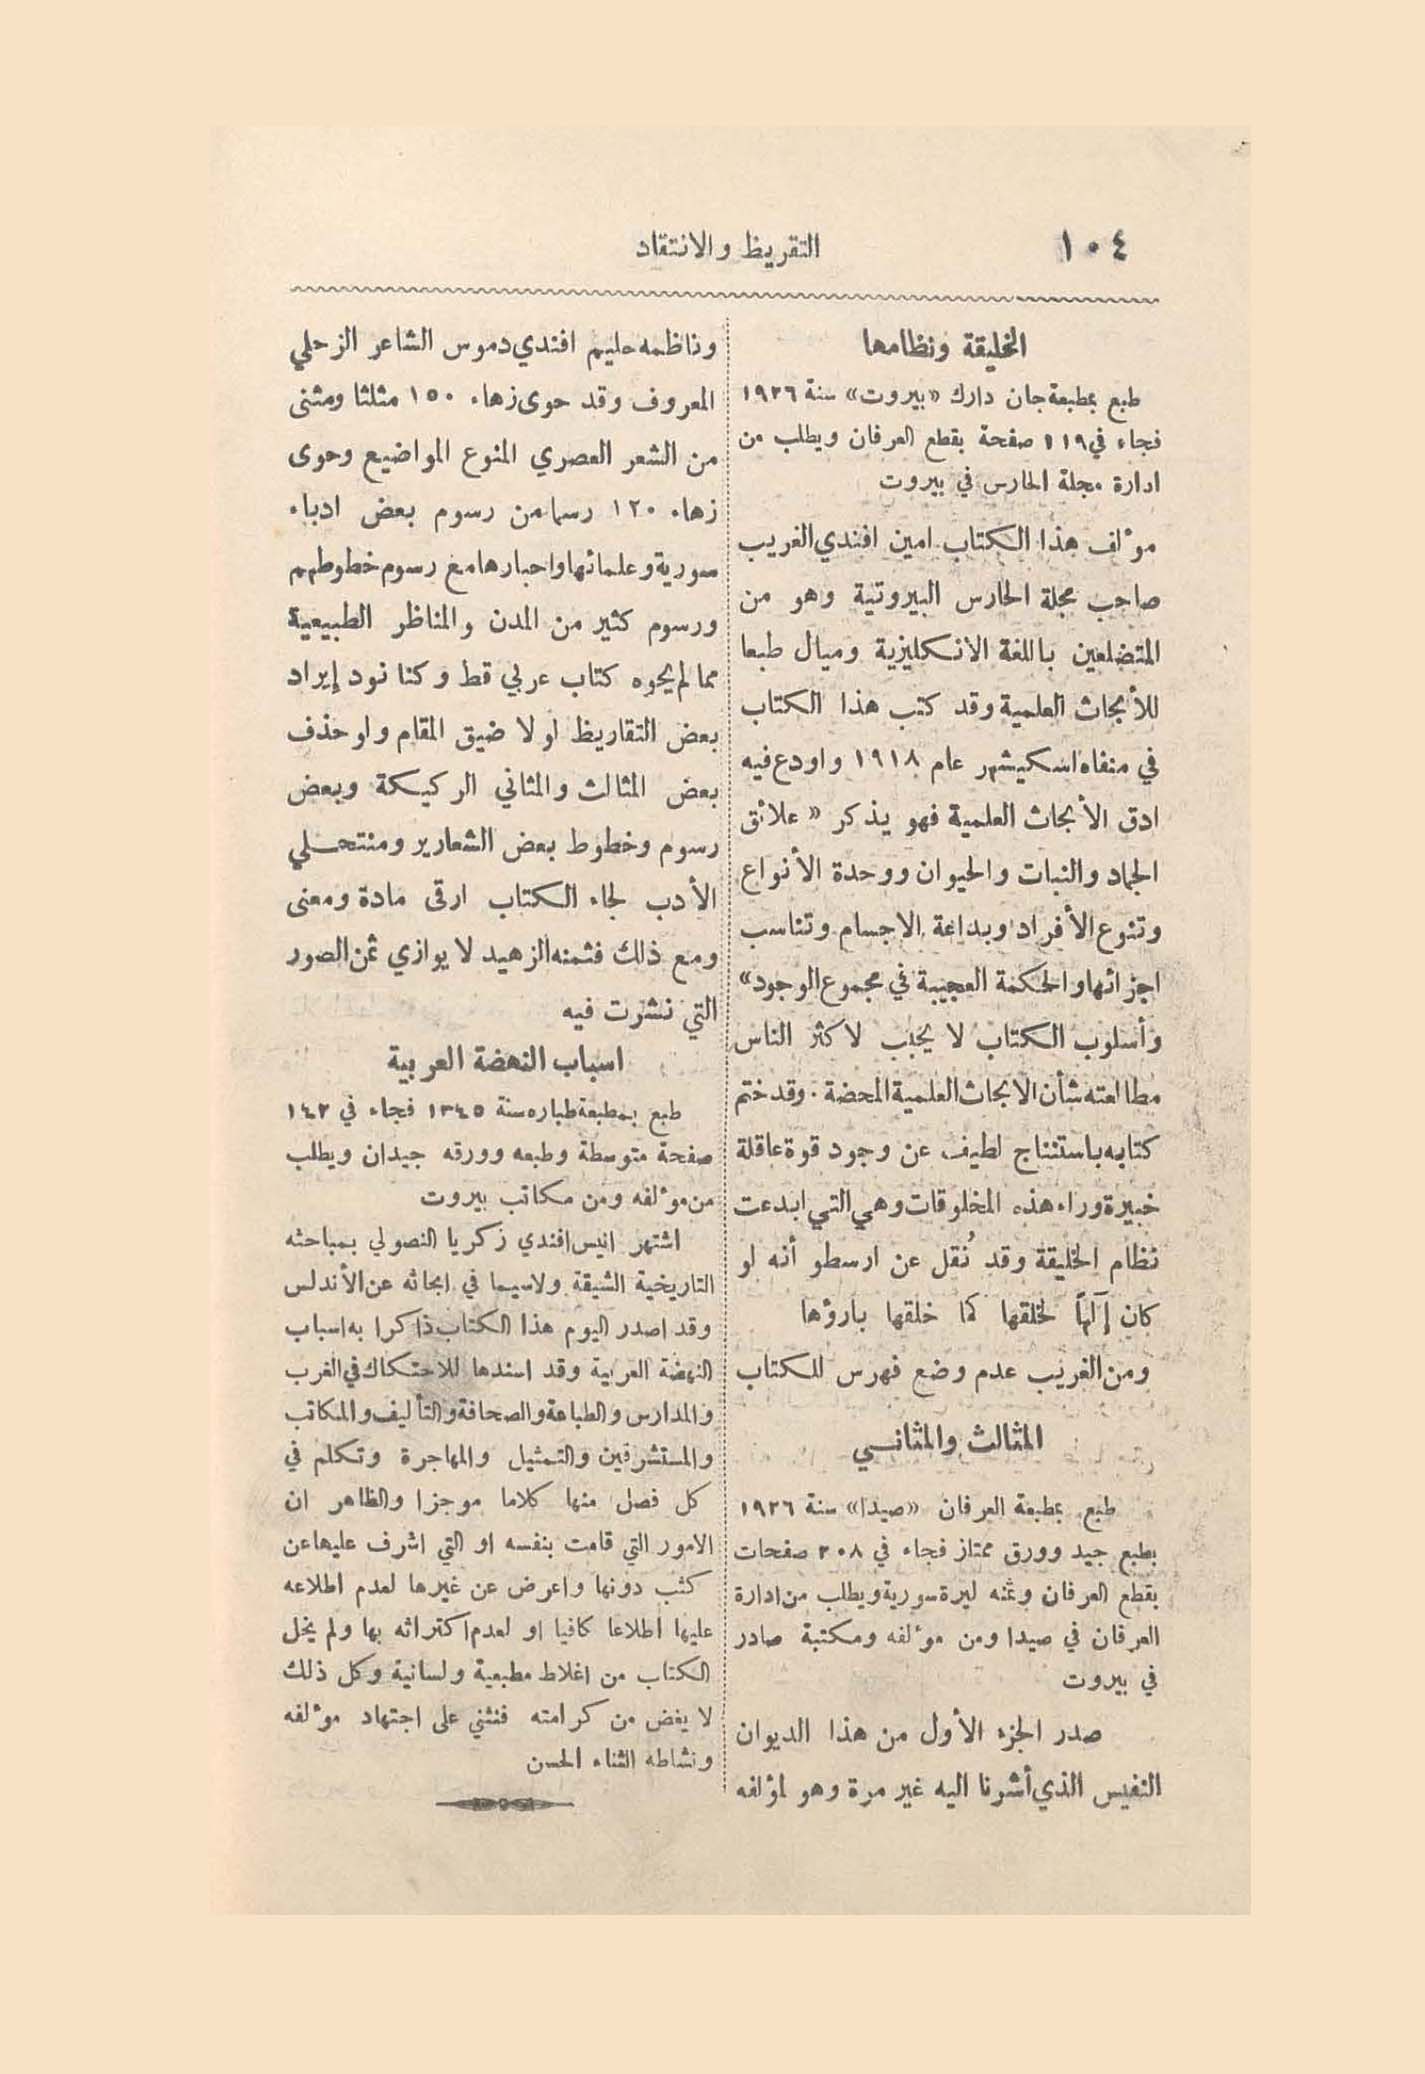 ١٠٤
التقريظ والانتقاد
الخليقة ونظامها
طبع بمطبعة جان دارك «بيروت» سنة ١٩٢٦
فجاء في ١١٩ صفحة بقطع العرفان ويطلب من
ادارة مجلة الحارس في بيروت
مؤلف هذا الكتاب امين افندي الغريب
صاحب مجلة الحارس البيروتية وهو من
المتضلعين باللغة الانكليزية وميال طبعا
للأبحاث العلمية وقد كتب هذا الكتاب
في منفاه اسكيشهر عام ١٩١٨ واودع فيه
ادق الأبحاث العلمية فهو يذكر «علائق
الجماد والنبات والحيوان ووحدة الأنواع
وتنوع الأفراد وبداعة الاجسام وتناسب
اجزائها والحكمة العجيبة في مجموع الوجود»
وأسلوب الكتاب لا يحبب لاكثر الناس
مطالعته شأن الابحاث العلمية المحضة . وقد ختم
كتابه باستنتاج لطيف عن وجود قوة عاقلة
خبيرة وراء هذه المخلوقات وهي التي ابدعت
نظام الخليقة وقد نُقل عن ارسطو أنه لو
كان إلهاً لخلقها كما خلقها بارؤها
ومن الغريب عدم وضع فهرس للكتاب
المثالث والمثاني
طبع بمطبعة العرفان «صيدا» سنة ١٩٢٦
بطبع جيد وورق ممتاز فجاء في ٢٠٨ صفحات
بقطع العرفان وثمنه ليرة سورية ويطلب من ادارة
العرفان في صيدا ومن مؤلفه ومكتبة صادر
في بيروت
صدر الجزء الأول من هذا الديوان
النفيس الذي أشرنا اليه غير مرة وهو لمؤلفه
وناظمه حليم افندي دموس الشاعر الزحلي
المعروف وقد حوى زهاء ١٥٠ مثلثا ومثنى
من الشعر العصري المنوع المواضيع وحوى
زهاء ١٢٠ رسما من رسوم بعض ادباء
سورية وعلمائها واحبارها مع رسوم خطوطهم
ورسوم كثير من المدن والمناظر الطبيعية
مما لم يحوه كتاب عربي قط وكنا نود إيراد
بعض التقاريظ لولا ضيق المقام ولو حذف
بعض المثالث والمثاني الركيكة وبعض
رسوم وخطوط بعض الشعارير ومنتحلي
الأدب لجاء الكتاب ارقى مادة ومعنى
ومع ذلك فثمنه الزهيد لا يوازي ثمن الصور
التي نشرت فيه
اسباب النهضة العربية
طبع بمطبعة طباره سنة ١٣٤٥ فجاء في ١٤٢
صفحة متوسطة وطبعه وورقه جيدان ويطلب
من مؤلفه ومن مكاتب بيروت
اشتهر انيس افندي زكريا النصولي بمباحثه
التاريخية الشيقة ولاسيما في ابحاثه عن الأندلس
وقد اصدر اليوم هذا الكتاب ذاكرا به اسباب
النهضة العربية وقد اسندها للاحتكاك في الغرب
والمدارس والطباعة والصحافة والتأليف والمكاتب
والمستشرقين والتمثيل والمهاجرة وتكلم في
كل فصل منها كلاما موجزا والظاهر ان
الامور التي قامت بنفسه او التي اشرف عليها عن
كثب دونها واعرض عن غيرها لعدم اطلاعه
عليها اطلاعا كافيا او لعدم اكتراثه بها ولم يخل
الكتاب من اغلاط مطبعية ولسانية وكل ذلك
لا يغض من كرامته فنثني على اجتهاد مؤلفه
ونشاطه الثناء الحسن